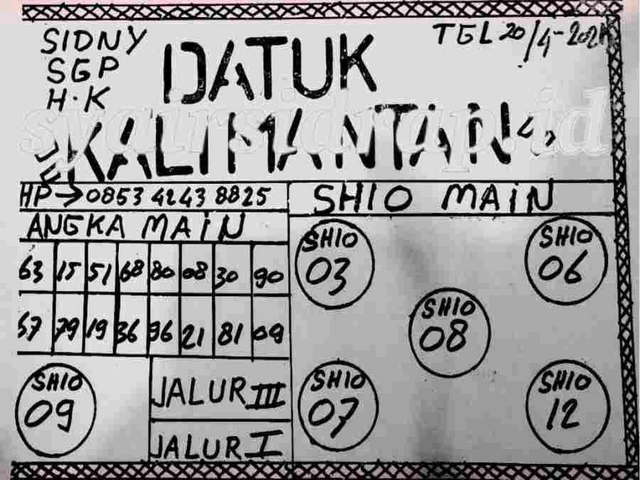 SIDNY
SGP
H·K
TGL 20/4-202
DATUK
KALIMANTAN
syairsidrap.id
HP → 0853 4243 8825
SHIO MAIN
ANGKA MAIN
63 15 51 68 80 08 30 90
57 79 19 36 96 21 81 09
SHIO 03
SHIO 06
SHIO 08
SHIO 09
JALUR III
JALUR I
SHIO 07
SHIO 12